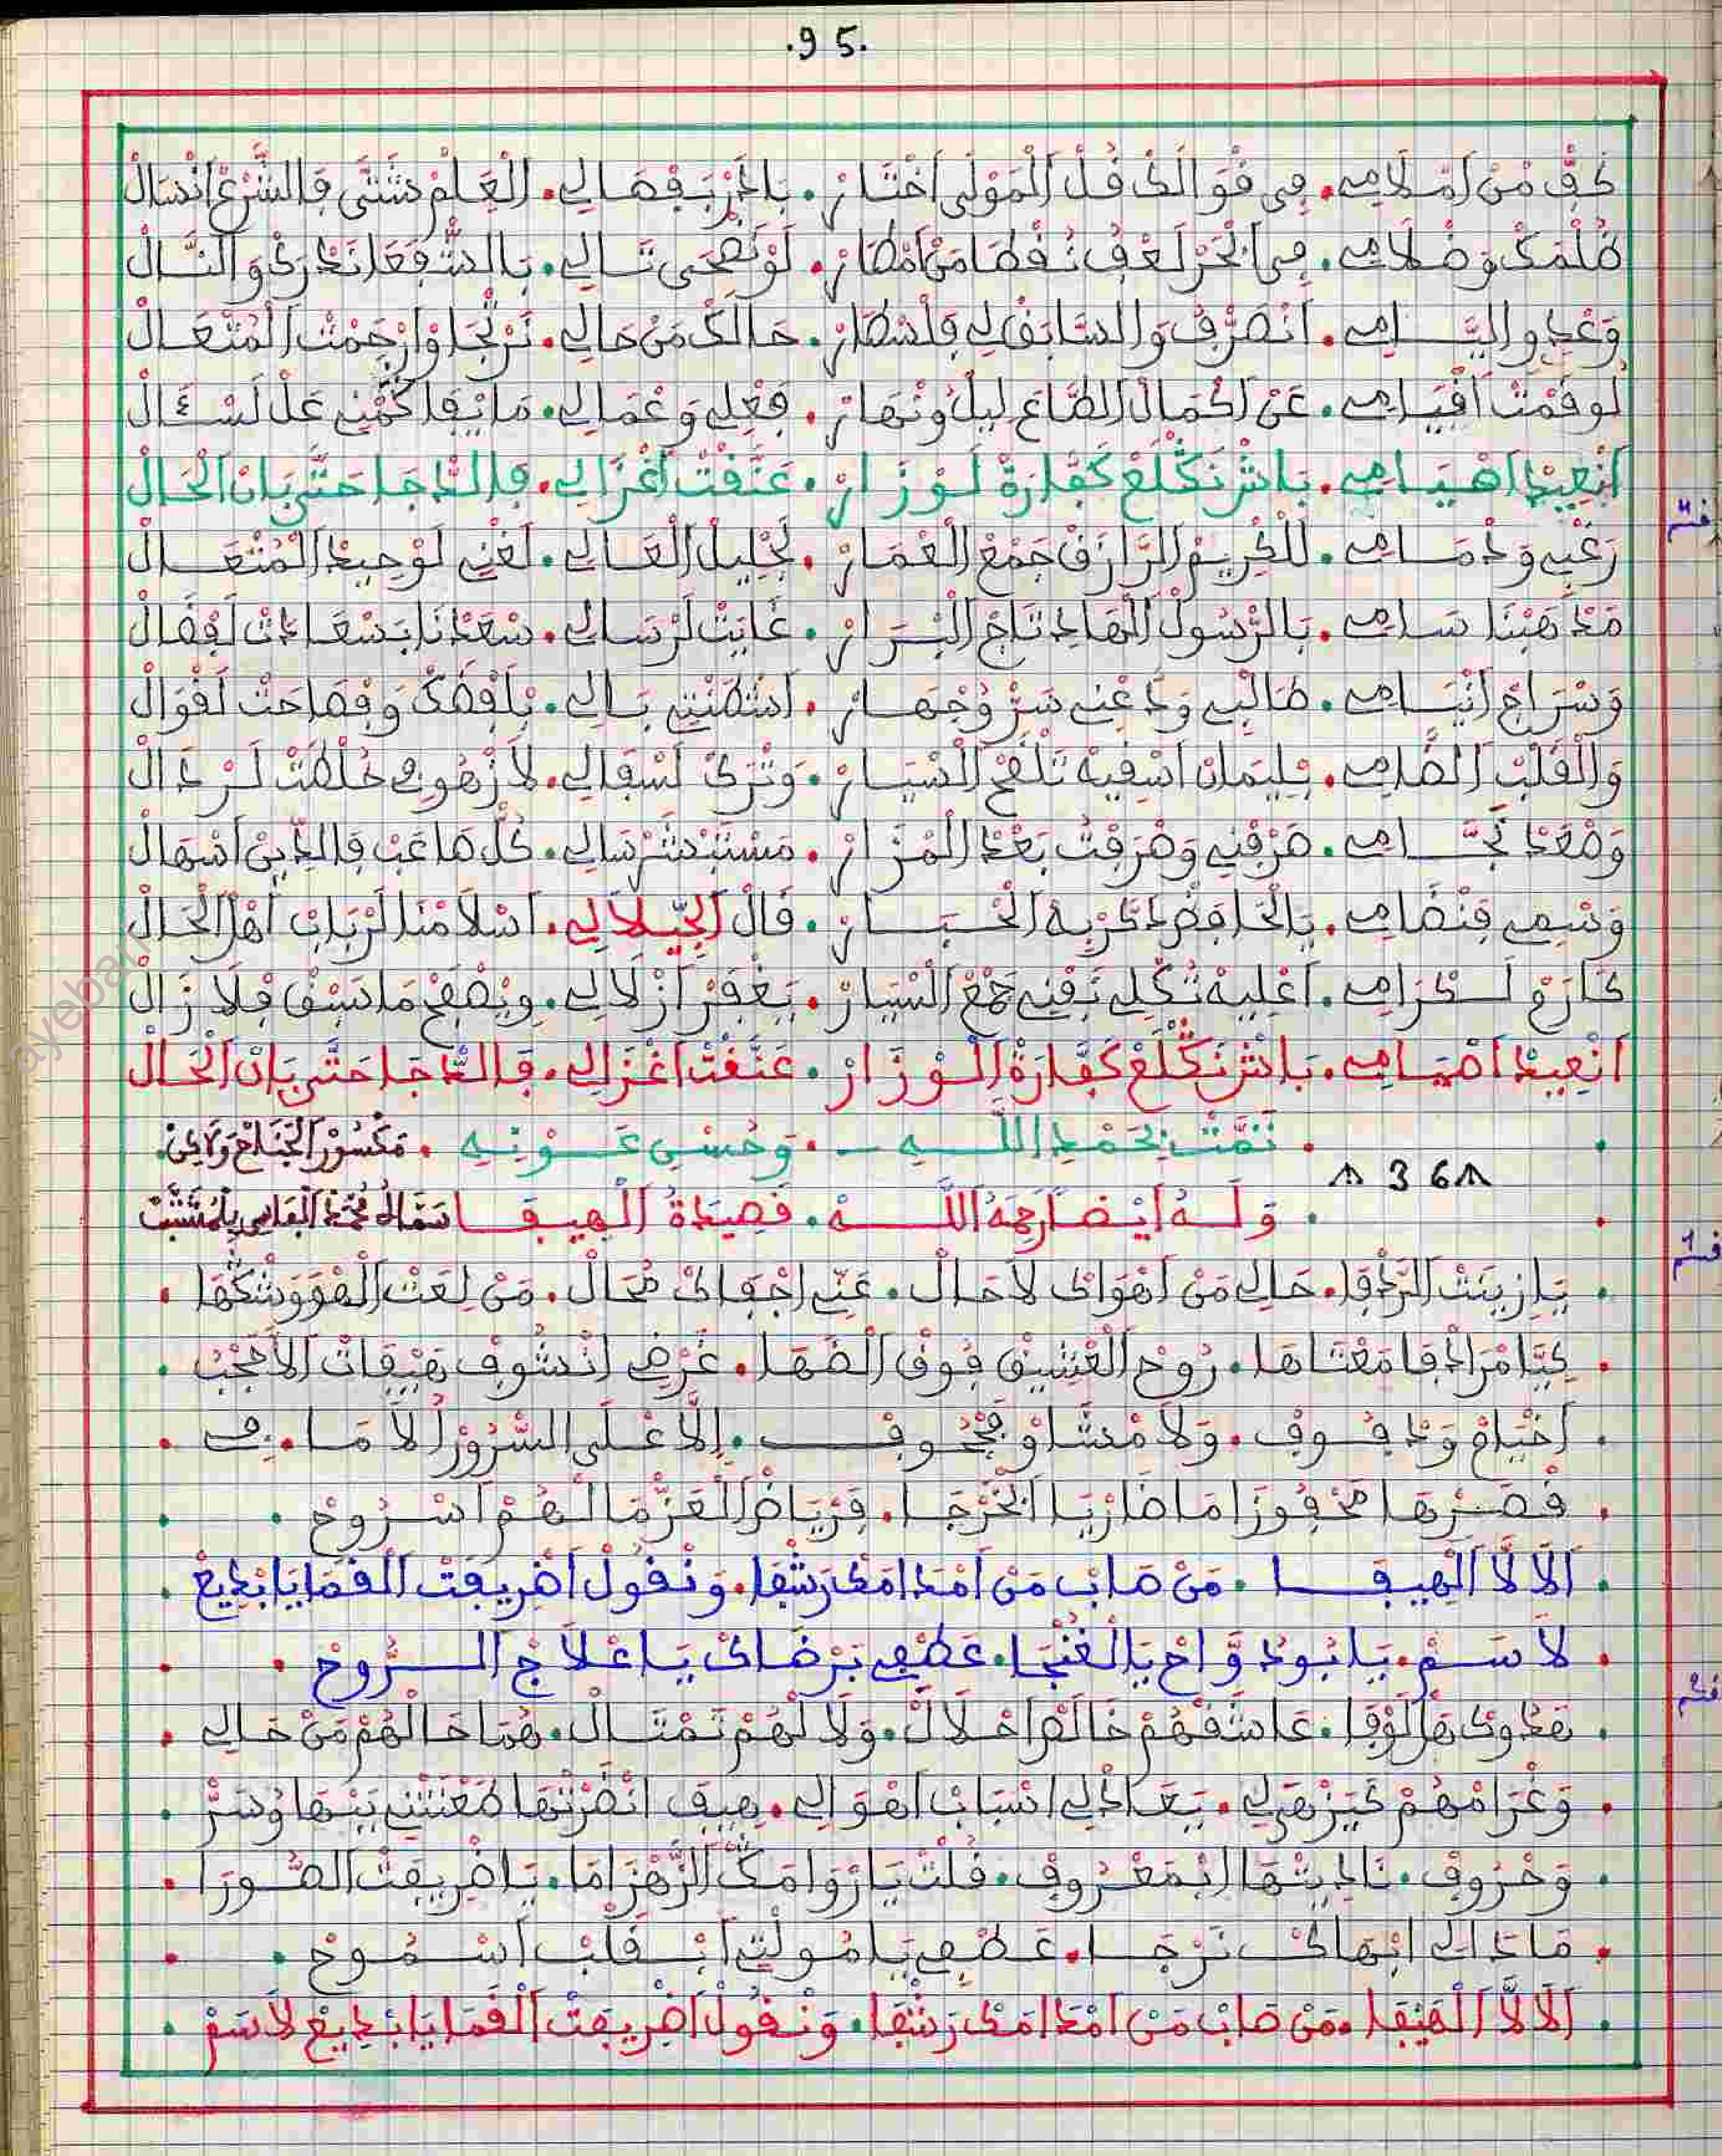 .95.
كفّ من املامي. في قوالك قل المولى اختار. بالجزر بفضالي. العلم شتى فالشرع انسال
ظلمك وظلامي. من البحر لغرف نقطا من امطار. لو نضحى تالي. بالشفعا ندرك والنال
وعدو اليـــامي. انصرف والسابق لي فلسطار. حالك من حالي. نرجاو ارحمت المتعال
لوقمت اقيامي. عن اكمال الطاع ليل ونهار. فعلي وعمالي. ما يفاكني عل لسئال
انعيد اصيامي. باش نكلع كفارة لوزار. عنفت اغزالي. فالدجا حتى بان الحال
قسم
رغبي ودمامي. للكريم الرازق جمع العمار. لجليل العالي. لغني لوحيد المتعال
مدهبنا سامي. بالرسول الهادي تاج البرار. غايت لرسالي. سعدنا بسعادت لفضال
وسراج انيامي. طالبي ودعني سر وجهار. اشطنتي بالي. بلفضك وفصاحت لقوال
والقلب الضامي. بليمان اسقيه تلقح السيار. وترك لسفالي. لا زهو في خلطت لردال
وصعد نجامي. صرفني وصرفت بعد المزار. مستبشر سالي. كل صاعب فالدين اسهال
وسمي فنضامي. بالحافض دكر به الخبار. قال الجيلالي. اسلامنا لرباب اهل الحال
كارم لكرامي. اعليه تكلي يقني جمع السيار. يغفر ازلالي. ويصفح ما سبق فلازال
انعيد اصيامي. باش نكلع كفارة الوزار. عنفت اغزالي. فالدجا حتى بان الحال
. تمت بحمد اللـــه . وحسن عـونه . مكسور الجناح ولاكن.
36
. ولـه ايضا رحمه اللـه. قصيدة الهيفـا سماه محمد الفاسي بلمشتب
قسم1
. يازينت الردفا. حالي من اهواك لاحال. عني اجفاك محال. من لعت الهوى وشكها .
. كيا مرادفا معتاها. روح العشيق فوق الضها. غرضي انشوف هيفات الاعجب .
. اخيام وقد فوف. ولا منشا وفجوف. الا على السرور لا مـا. في .
. قصرها محفوزا ماضاريا الخرجا. فرياض العز مالهم اسروح . .
. الا لا الهيفـا . من صاب من امدامك رشفا. ونقول اضريفت القمايا بديع .
. لا سم. يا بودواح يا الغنجا. عطفي برضاك يا علاج الـروح . .
قسم2
. هدوك هل لوفا. عاشقهم خالص احلال. ولا لهم تمتال. هما حالهم من حالي .
. وغرامهم كيزهى لي. يعادلي انساب اهوالي. هيف انضرتها طعنتني بيها وسر .
. وحروف. ناديتها المعروف. قلت يازوامك الزهزاما. يا ضريفت الصورا .
. ما دالي ابهاك نرجا. عطفي يا مولتي ابقلب اسموح . .
. الا لا الهيفا. من صاب من امدامك رشفا. ونقول اضريفت القمايا بديع لا سم .